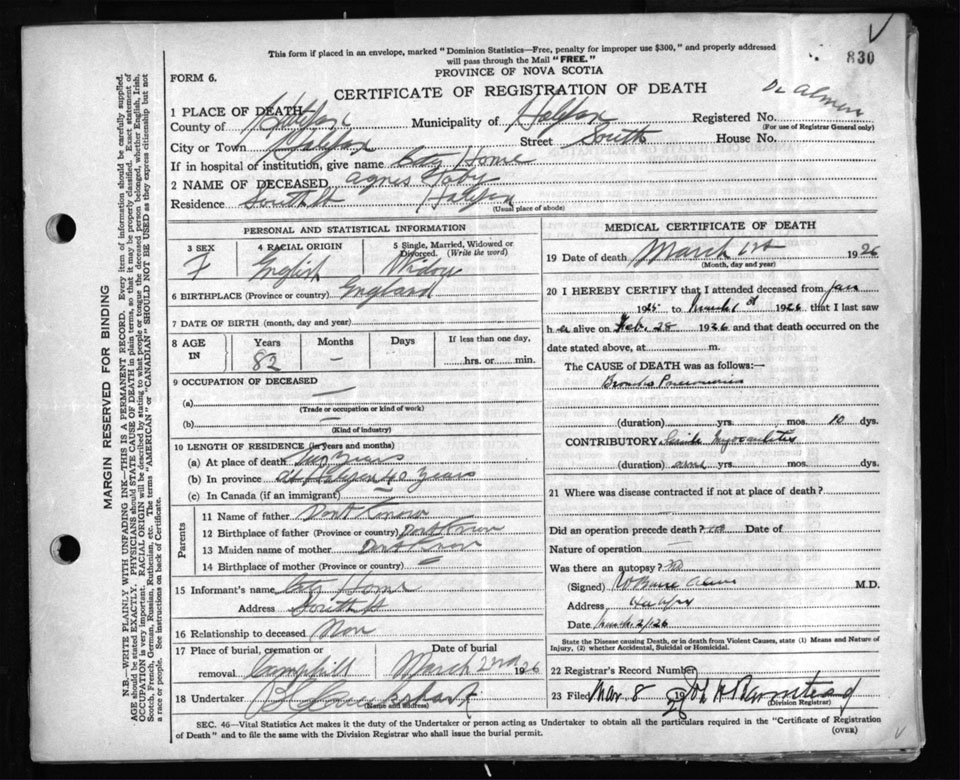 830
This form if placed in an envelope, marked "Dominion Statistics—Free, penalty for improper use $300," and properly addressed
will pass through the Mail "FREE."
PROVINCE OF NOVA SCOTIA
FORM 6.
CERTIFICATE OF REGISTRATION OF DEATH
1 PLACE OF DEATH
County of Halifax Municipality of Halifax Registered No.
(For use of Registrar General only)
City or Town Halifax Street South House No.
If in hospital or institution, give name City Home
2 NAME OF DECEASED, Agnes
Residence South St Halifax
(Usual place of abode)
PERSONAL AND STATISTICAL INFORMATION
3 SEX 4 RACIAL ORIGIN 5 Single, Married, Widowed or Divorced. (Write the word)
F English Widow
6 BIRTHPLACE (Province or country) England
7 DATE OF BIRTH (month, day and year)
8 AGE IN Years Months Days If less than one day,
82 — hrs. or min.
9 OCCUPATION OF DECEASED —
(a)
(Trade or occupation or kind of work)
(b) —
(Kind of industry)
10 LENGTH OF RESIDENCE (in years and months)
(a) At place of death Two Years
(b) In province at Halifax 40 Years
(c) In Canada (if an immigrant)
Parents
11 Name of father Dont Know
12 Birthplace of father (Province or country) Dont Know
13 Maiden name of mother Dont Know
14 Birthplace of mother (Province or country) =
15 Informant's name City Home
Address South St
16 Relationship to deceased Non
17 Place of burial, cremation or removal Date of burial
Camphill March 2nd 1926
18 Undertaker
(Name and address)
MEDICAL CERTIFICATE OF DEATH
19 Date of death March 1st 1926
(Month, day and year)
20 I HEREBY CERTIFY that I attended deceased from Jan
1925 to March 1st 1926 that I last saw
her alive on Feb. 28 1926 and that death occurred on the
date stated above, at m.
The CAUSE of DEATH was as follows:—
Broncho Pneumonia
(duration) yrs. mos. 10 dys.
CONTRIBUTORY Senile Myocarditis
(duration) yrs. mos. dys.
21 Where was disease contracted if not at place of death?
Did an operation precede death? no Date of
Nature of operation —
Was there an autopsy? no
(Signed) M.D.
Address Halifax
Date March 2/26
State the Disease causing Death, or in death from Violent Causes, state (1) Means and Nature of
Injury, (2) whether Accidental, Suicidal or Homicidal.
22 Registrar's Record Number
23 Filed Mar. 8 1926
(Division Registrar)
SEC. 46—Vital Statistics Act makes it the duty of the Undertaker or person acting as Undertaker to obtain all the particulars required in the "Certificate of Registration
of Death" and to file the same with the Division Registrar who shall issue the burial permit.
(OVER)
MARGIN RESERVED FOR BINDING
N.B.—WRITE PLAINLY WITH UNFADING INK—THIS IS A PERMANENT RECORD. Every item of information should be carefully supplied.
AGE should be stated EXACTLY. PHYSICIANS should STATE CAUSE OF DEATH in plain terms, so that it may be properly classified. Exact statement of
OCCUPATION is very important. RACIAL ORIGIN will be described by stating to what people or tongue the deceased person belonged, whether English, Irish,
Scotch, French, German, Russian, Ruthenian, etc. The terms "AMERICAN" or "CANADIAN" SHOULD NOT BE USED as they express citizenship but not
a race or people. See instructions on back of Certificate.